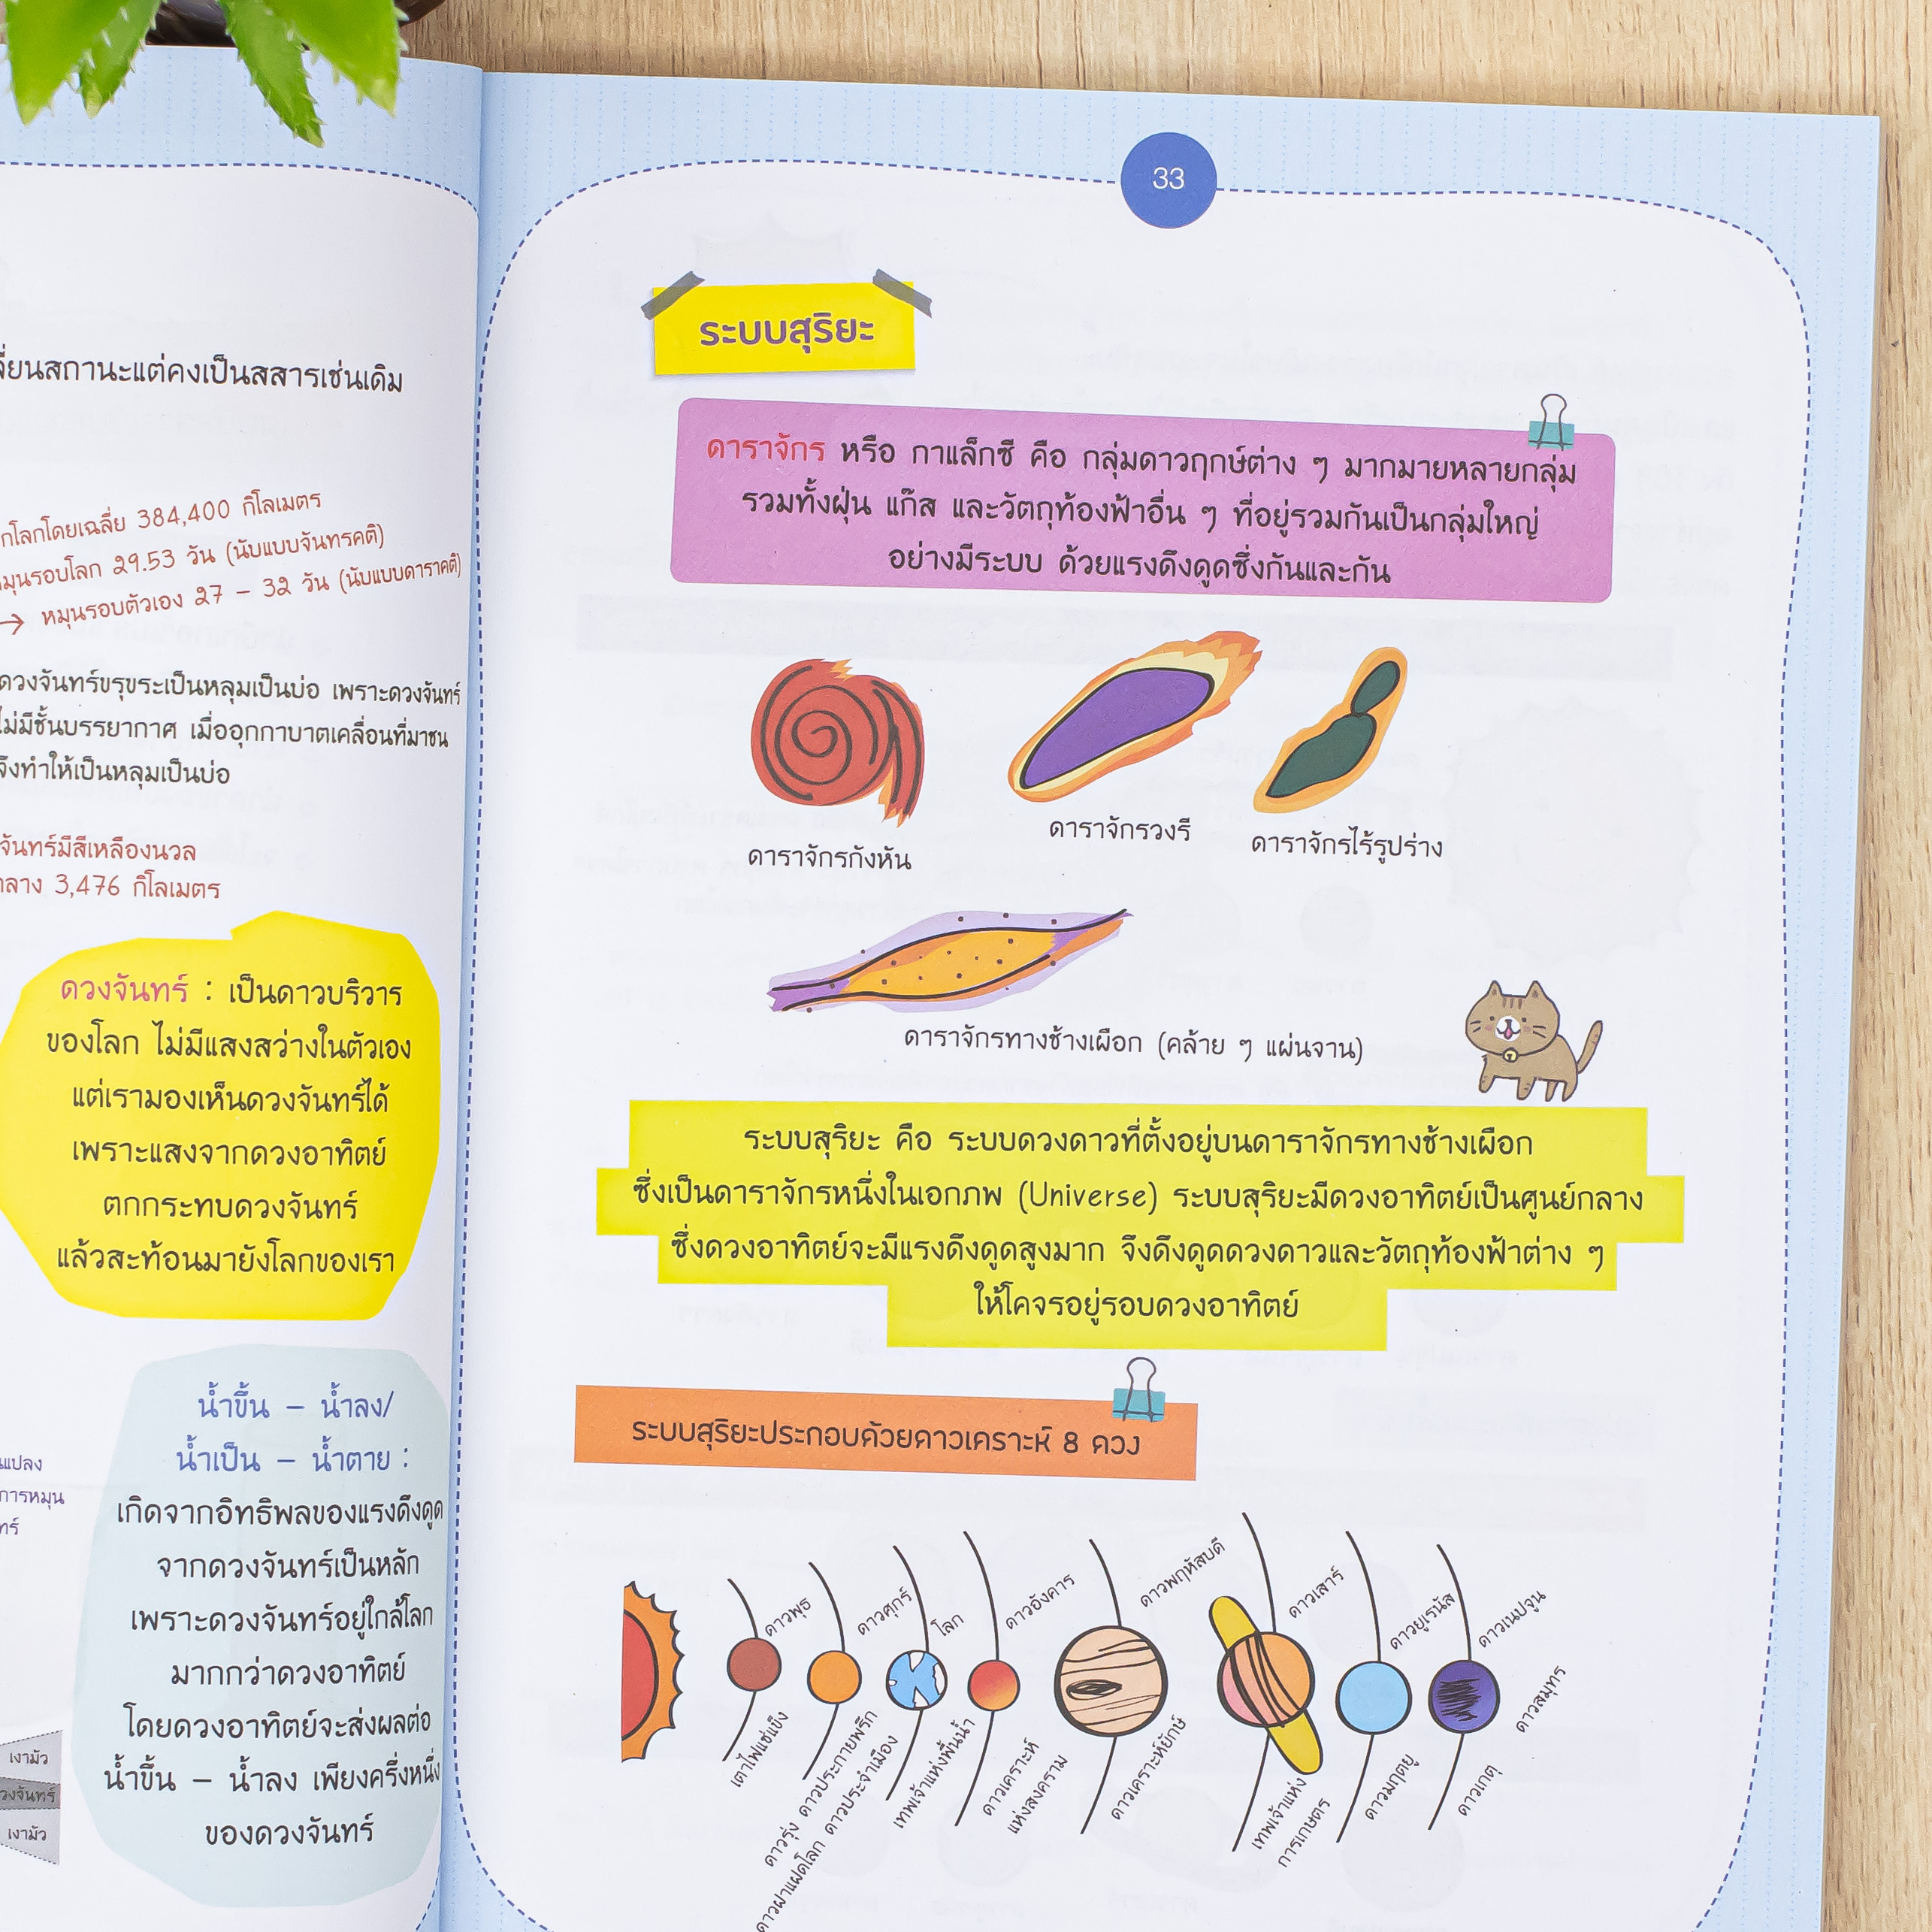 ลี่ยนสถานะแต่คงเป็นสสารเช่นเดิม
กโลกโดยเฉลี่ย 384,400 กิโลเมตร
หมุนรอบโลก 29.53 วัน (นับแบบจันทรคติ)
→ หมุนรอบตัวเอง 27 – 32 วัน (นับแบบดาราคติ)
ดวงจันทร์ขรุขระเป็นหลุมเป็นบ่อ เพราะดวงจันทร์
ไม่มีชั้นบรรยากาศ เมื่ออุกกาบาตเคลื่อนที่มาชน
จึงทำให้เป็นหลุมเป็นบ่อ
จันทร์มีสีเหลืองนวล
กลาง 3,476 กิโลเมตร
ดวงจันทร์ : เป็นดาวบริวาร
ของโลก ไม่มีแสงสว่างในตัวเอง
แต่เรามองเห็นดวงจันทร์ได้
เพราะแสงจากดวงอาทิตย์
ตกกระทบดวงจันทร์
แล้วสะท้อนมายังโลกของเรา
น้ำขึ้น – น้ำลง/
น้ำเป็น – น้ำตาย :
เกิดจากอิทธิพลของแรงดึงดูด
จากดวงจันทร์เป็นหลัก
เพราะดวงจันทร์อยู่ใกล้โลก
มากกว่าดวงอาทิตย์
โดยดวงอาทิตย์จะส่งผลต่อ
น้ำขึ้น – น้ำลง เพียงครึ่งหนึ่ง
ของดวงจันทร์
นแปลง
การหมุน
ทร์
เงามัว
วงจันทร์
เงามัว
33
ระบบสุริยะ
ดาราจักร หรือ กาแล็กซี คือ กลุ่มดาวฤกษ์ต่าง ๆ มากมายหลายกลุ่ม
รวมทั้งฝุ่น แก๊ส และวัตถุท้องฟ้าอื่น ๆ ที่อยู่รวมกันเป็นกลุ่มใหญ่
อย่างมีระบบ ด้วยแรงดึงดูดซึ่งกันและกัน
ดาราจักรกังหัน
ดาราจักรวงรี
ดาราจักรไร้รูปร่าง
ดาราจักรทางช้างเผือก (คล้าย ๆ แผ่นจาน)
ระบบสุริยะ คือ ระบบดวงดาวที่ตั้งอยู่บนดาราจักรทางช้างเผือก
ซึ่งเป็นดาราจักรหนึ่งในเอกภพ (Universe) ระบบสุริยะมีดวงอาทิตย์เป็นศูนย์กลาง
ซึ่งดวงอาทิตย์จะมีแรงดึงดูดสูงมาก จึงดึงดูดดวงดาวและวัตถุท้องฟ้าต่าง ๆ
ให้โคจรอยู่รอบดวงอาทิตย์
ระบบสุริยะประกอบด้วยดาวเคราะห์ 8 ดวง
ดาวพุธ
ดาวศุกร์
โลก
ดาวอังคาร
ดาวพฤหัสบดี
ดาวเสาร์
ดาวยูเรนัส
ดาวเนปจูน
เตาไฟแช่แข็ง
ดาวรุ่ง ดาวประกายพรึก
ดาวฝาแฝดโลก ดาวประจำเมือง
เทพเจ้าแห่งพื้นน้ำ
ดาวเคราะห์
แห่งสงคราม
ดาวเคราะห์ยักษ์
เทพเจ้าแห่ง
การเกษตร
ดาวมฤตยู
ดาวเกตุ
ดาวสมุทร